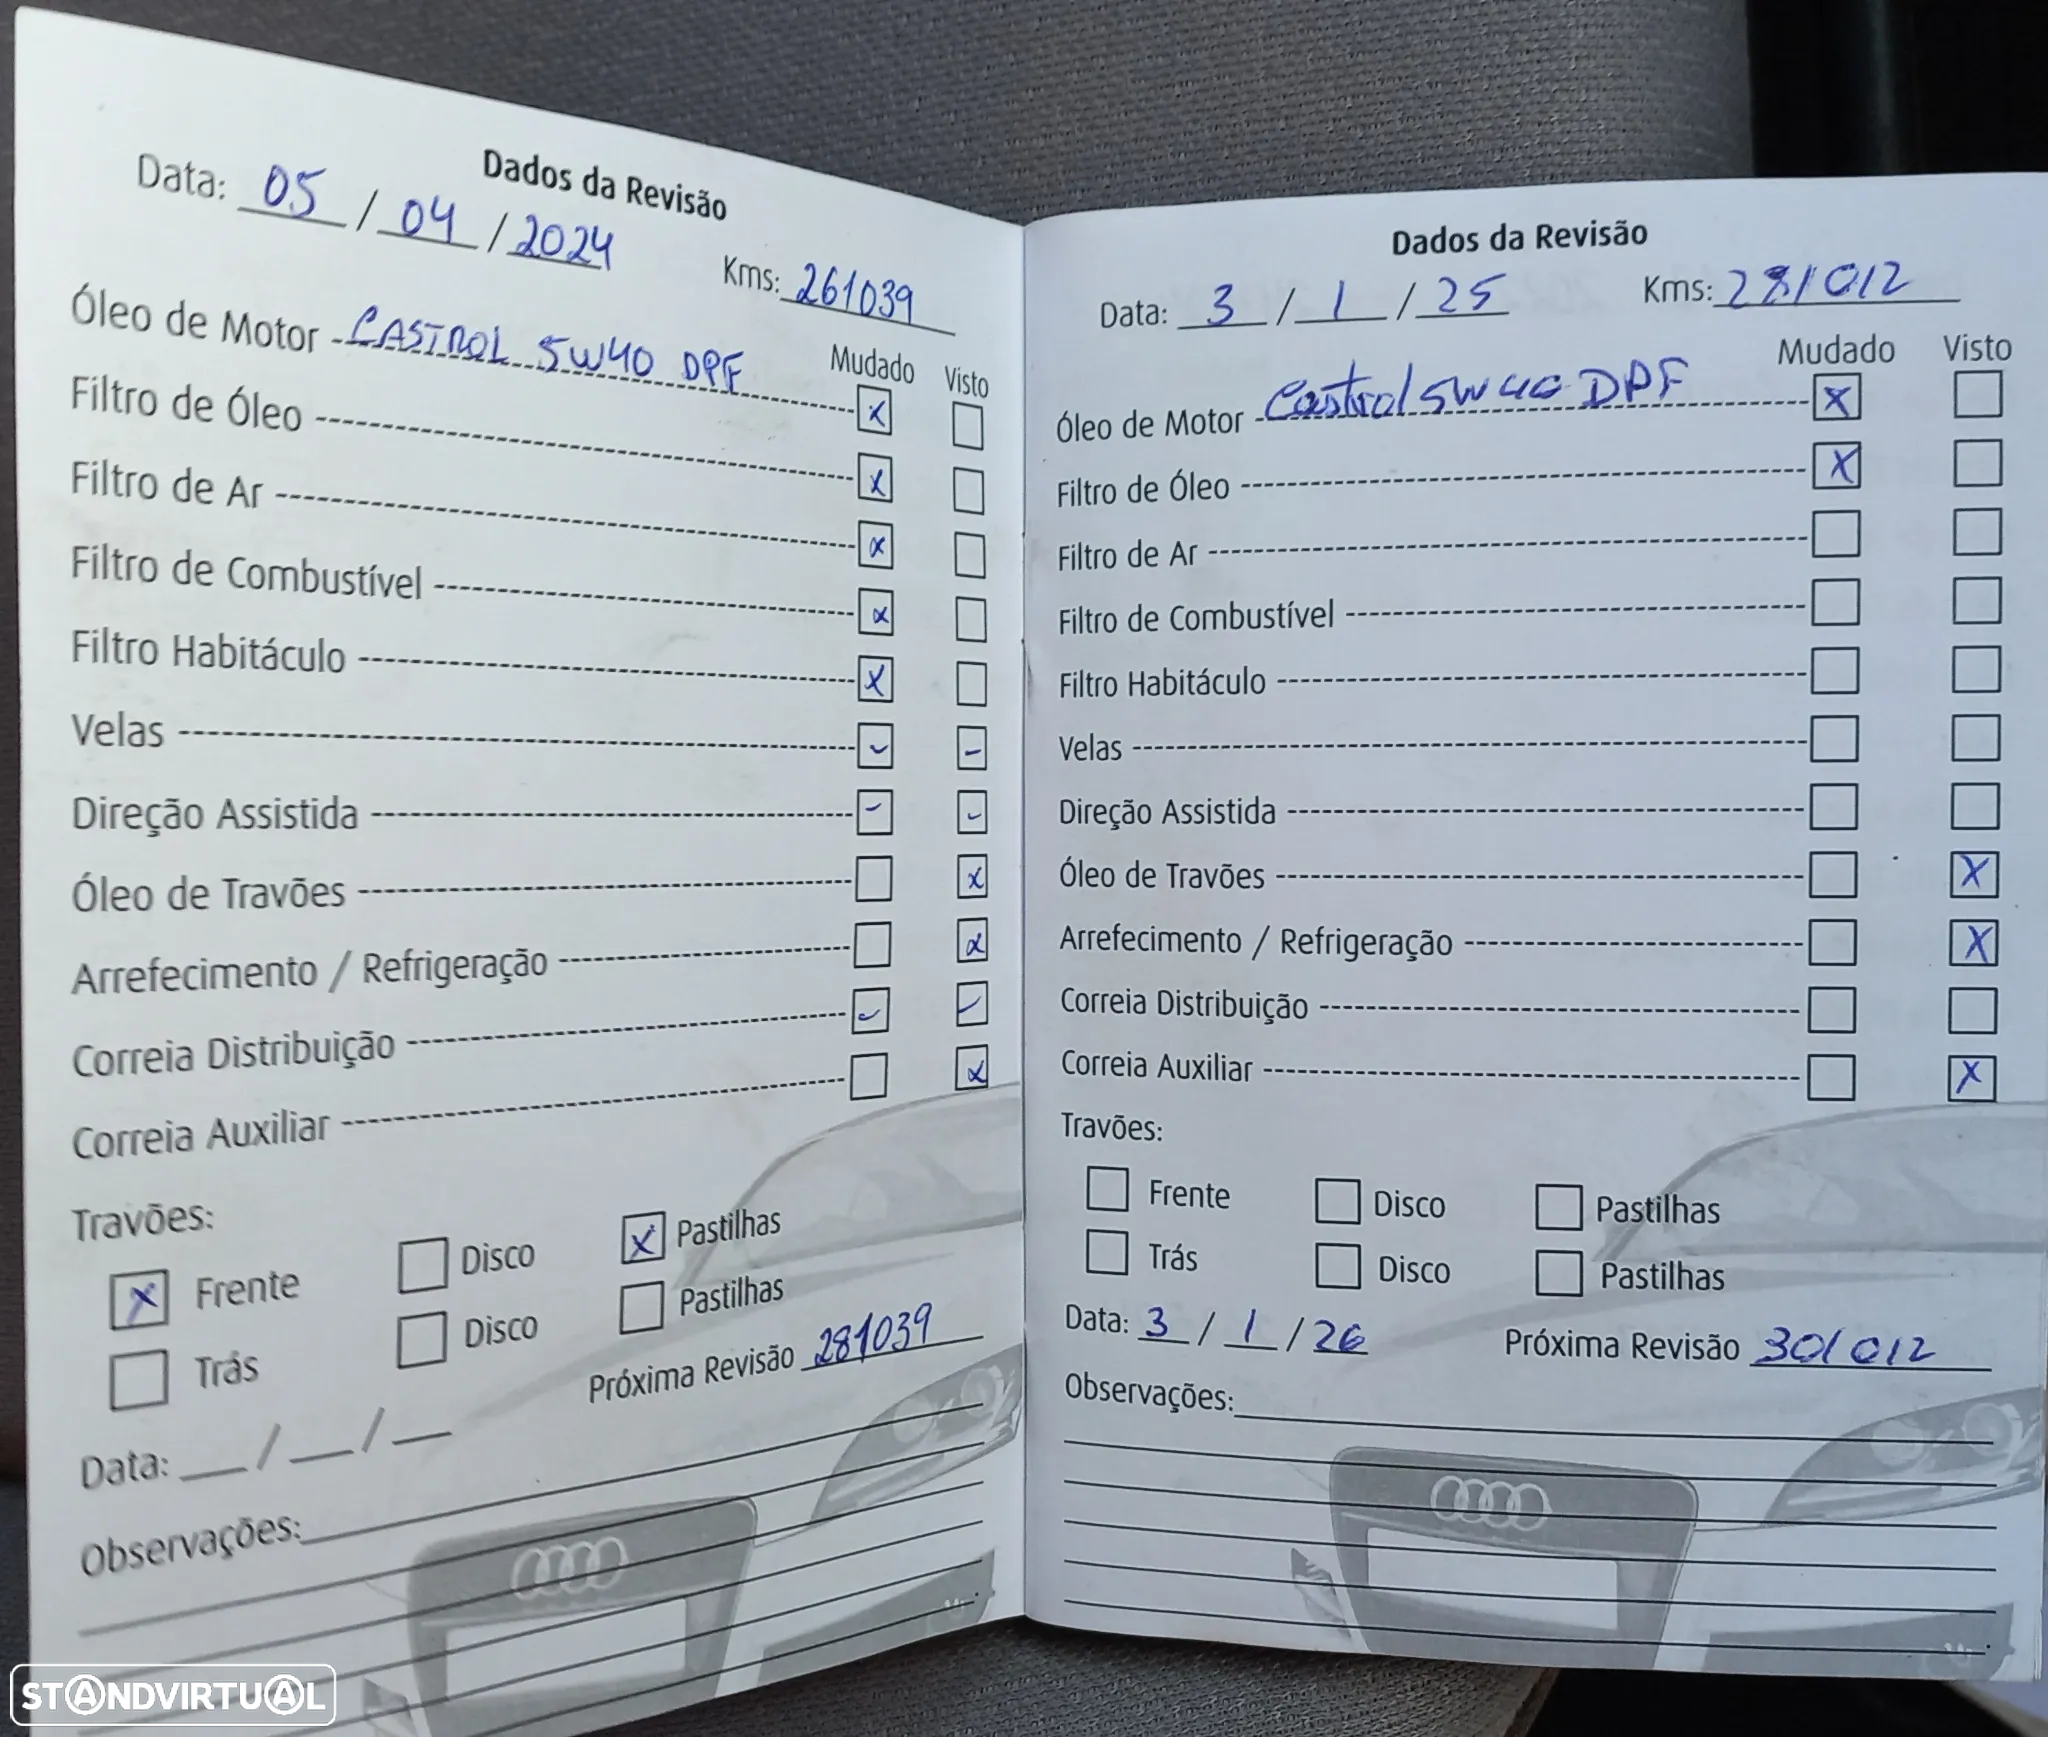 Dados da Revisão
Data: 05 / 04 / 2024
Kms: 261039
Mudado Visto
Óleo de Motor CASTROL 5W40 DPF X
Filtro de Óleo X
Filtro de Ar X
Filtro de Combustível X
Filtro Habitáculo X
Velas - -
Direção Assistida - -
Óleo de Travões X
Arrefecimento / Refrigeração X
Correia Distribuição - -
Correia Auxiliar X
Travões:
X Frente Disco X Pastilhas
Trás Disco Pastilhas
Data: __ / __ / __ Próxima Revisão 281039
Observações:
Dados da Revisão
Data: 3 / 1 / 25 Kms: 281012
Mudado Visto
Óleo de Motor Castrol 5W40 DPF X
Filtro de Óleo X
Filtro de Ar
Filtro de Combustível
Filtro Habitáculo
Velas
Direção Assistida
Óleo de Travões X
Arrefecimento / Refrigeração X
Correia Distribuição
Correia Auxiliar X
Travões:
Frente Disco Pastilhas
Trás Disco Pastilhas
Data: 3 / 1 / 26 Próxima Revisão 301012
Observações:
STANDVIRTUAL